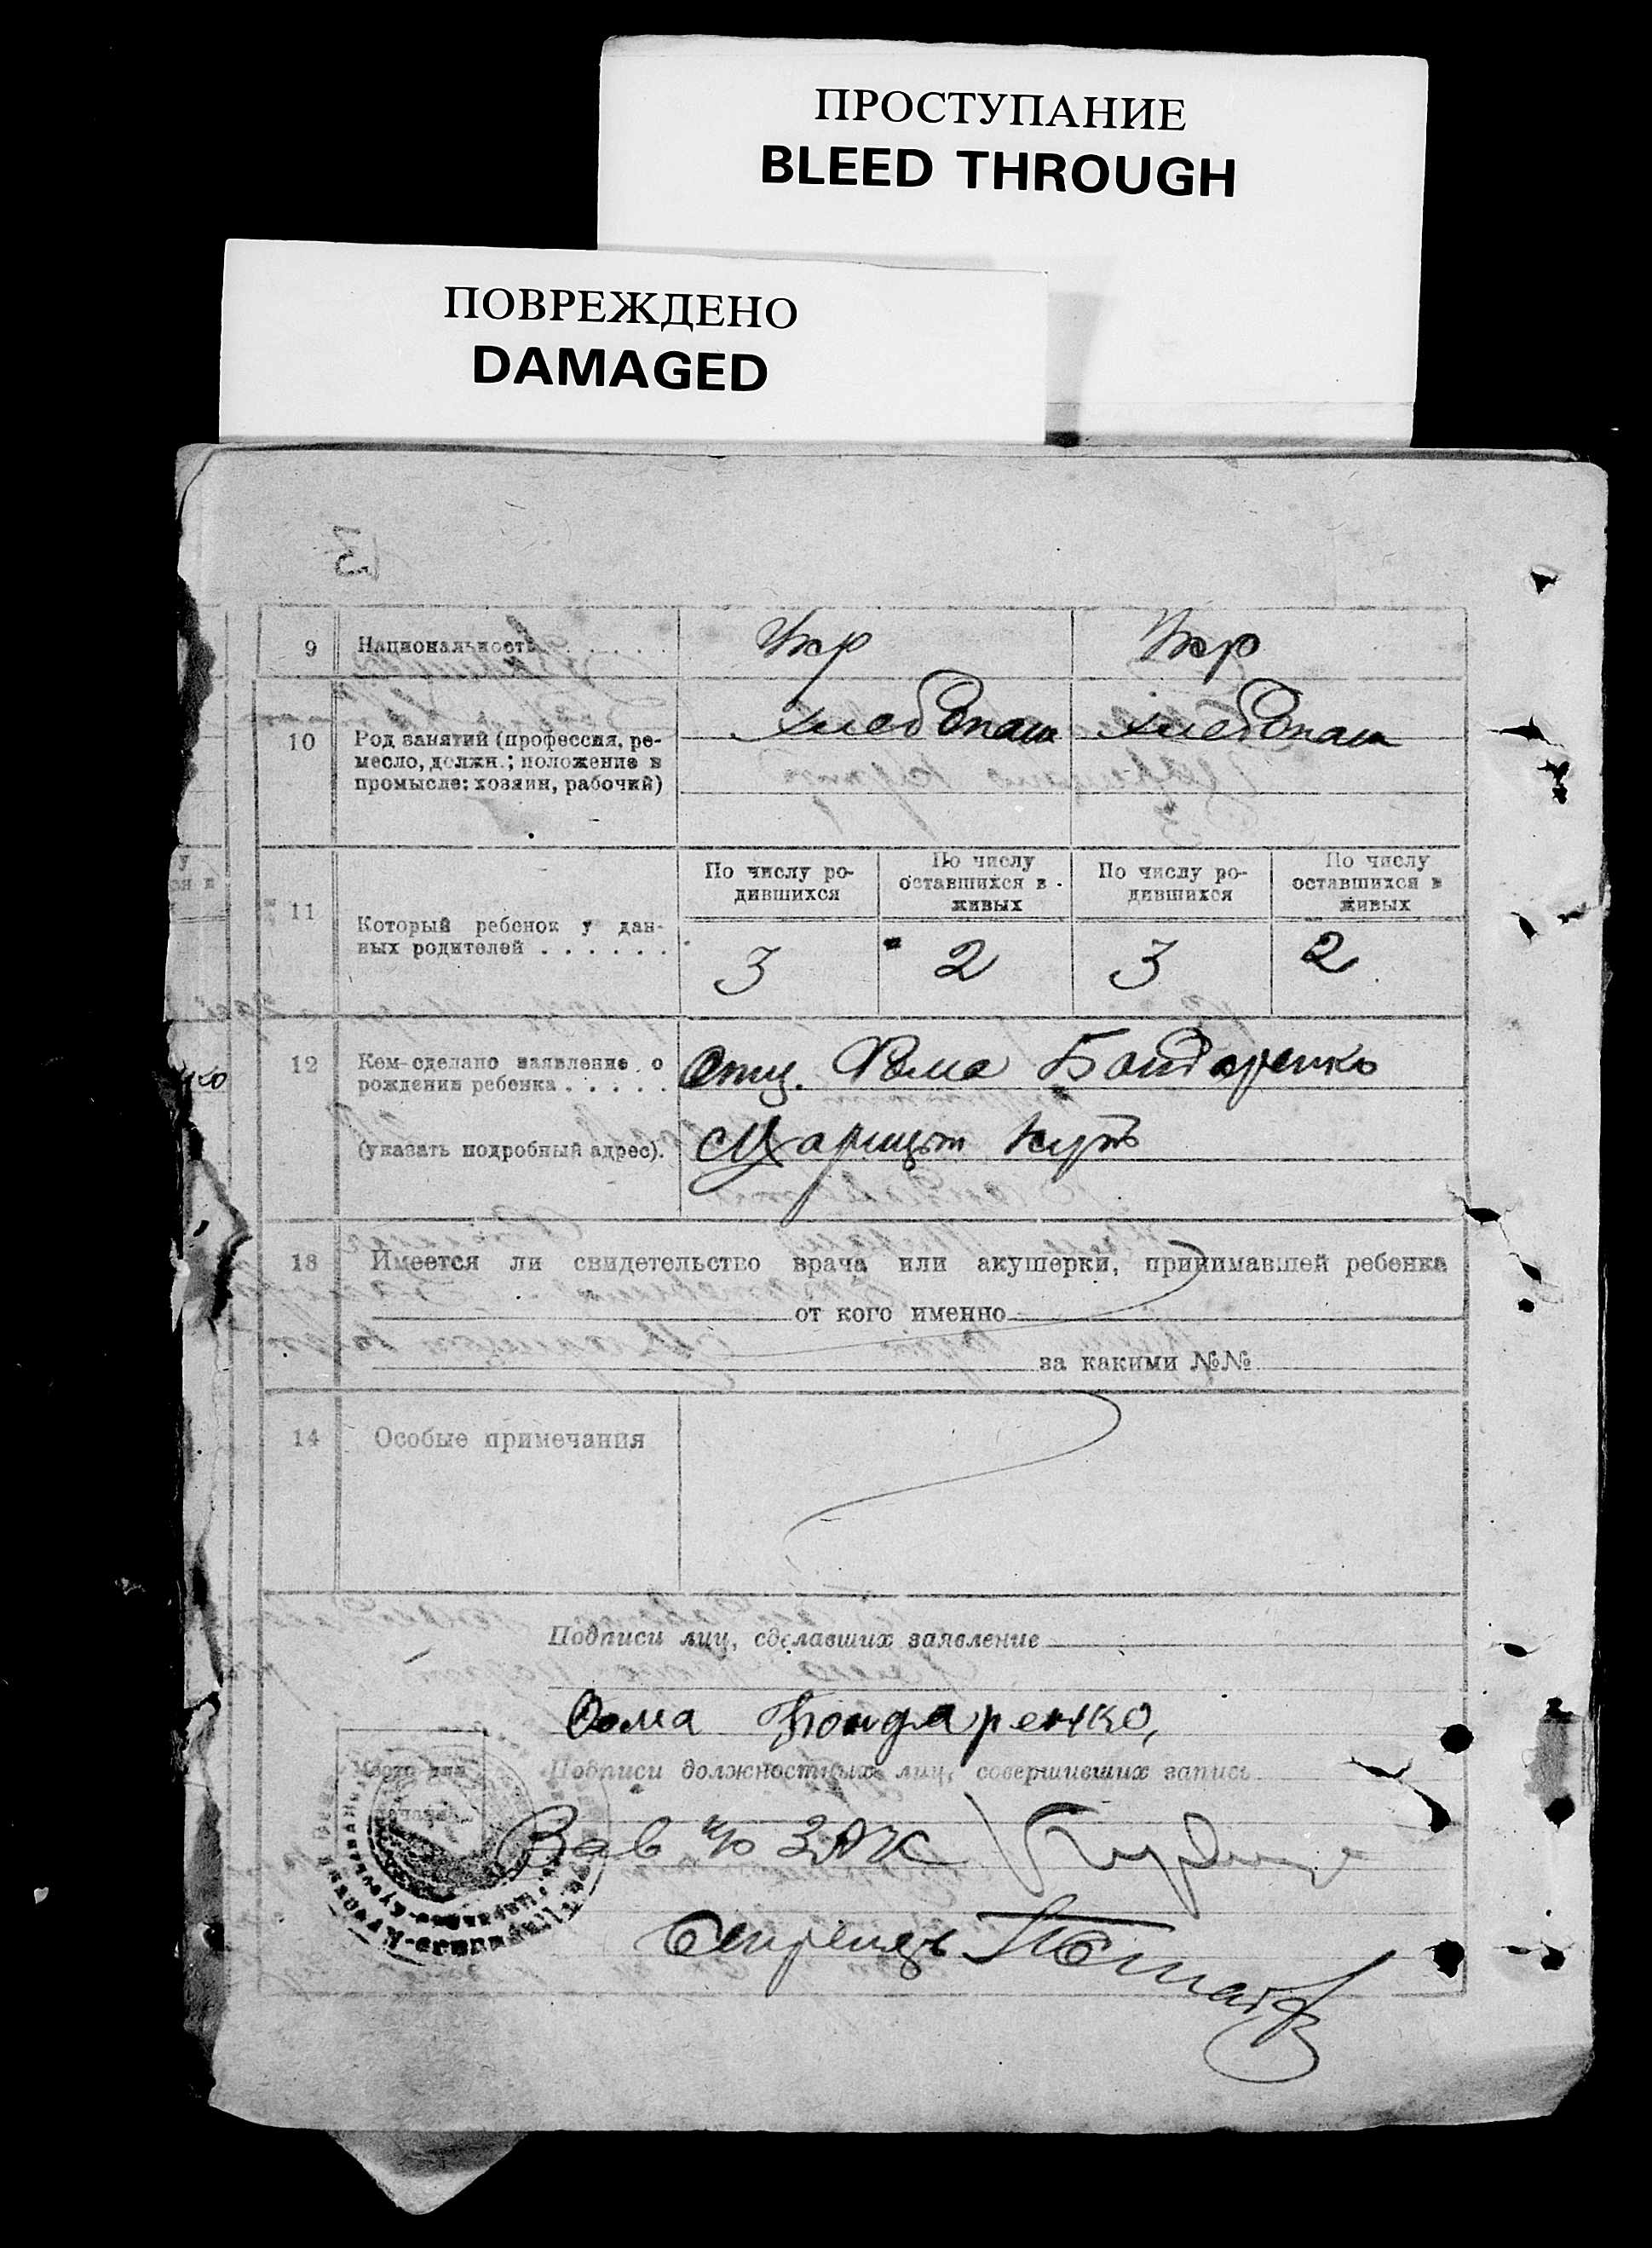 ПРОСТУПАНИЕ
BLEED THROUGH
ПОВРЕЖДЕНО
DAMAGED
9 Национальность . . . . . . Укр Укр
10 Род занятий (профессия, ре-
месло, должн.; положение в
промысле: хозяин, рабочий)
хлебопаш хлебопаш
11 Который ребенок у дан-
ных родителей . . . . . .
По числу ро-
дившихся
По числу
оставшихся в
живых
По числу ро-
дившихся
По числу
оставшихся в
живых
3 2 3 2
12 Кем сделано заявление о
рождении ребенка . . . . .
(указать подробный адрес).
Отец. Фома Бондаренко
с Царицын Кут
13 Имеется ли свидетельство врача или акушерки, принимавшей ребенка
от кого именно
за какими №№
14 Особые примечания
Подписи лиц, сделавших заявление
Фома Бондаренко,
Место для
печати
Подписи должностных лиц, совершивших запись
Зав